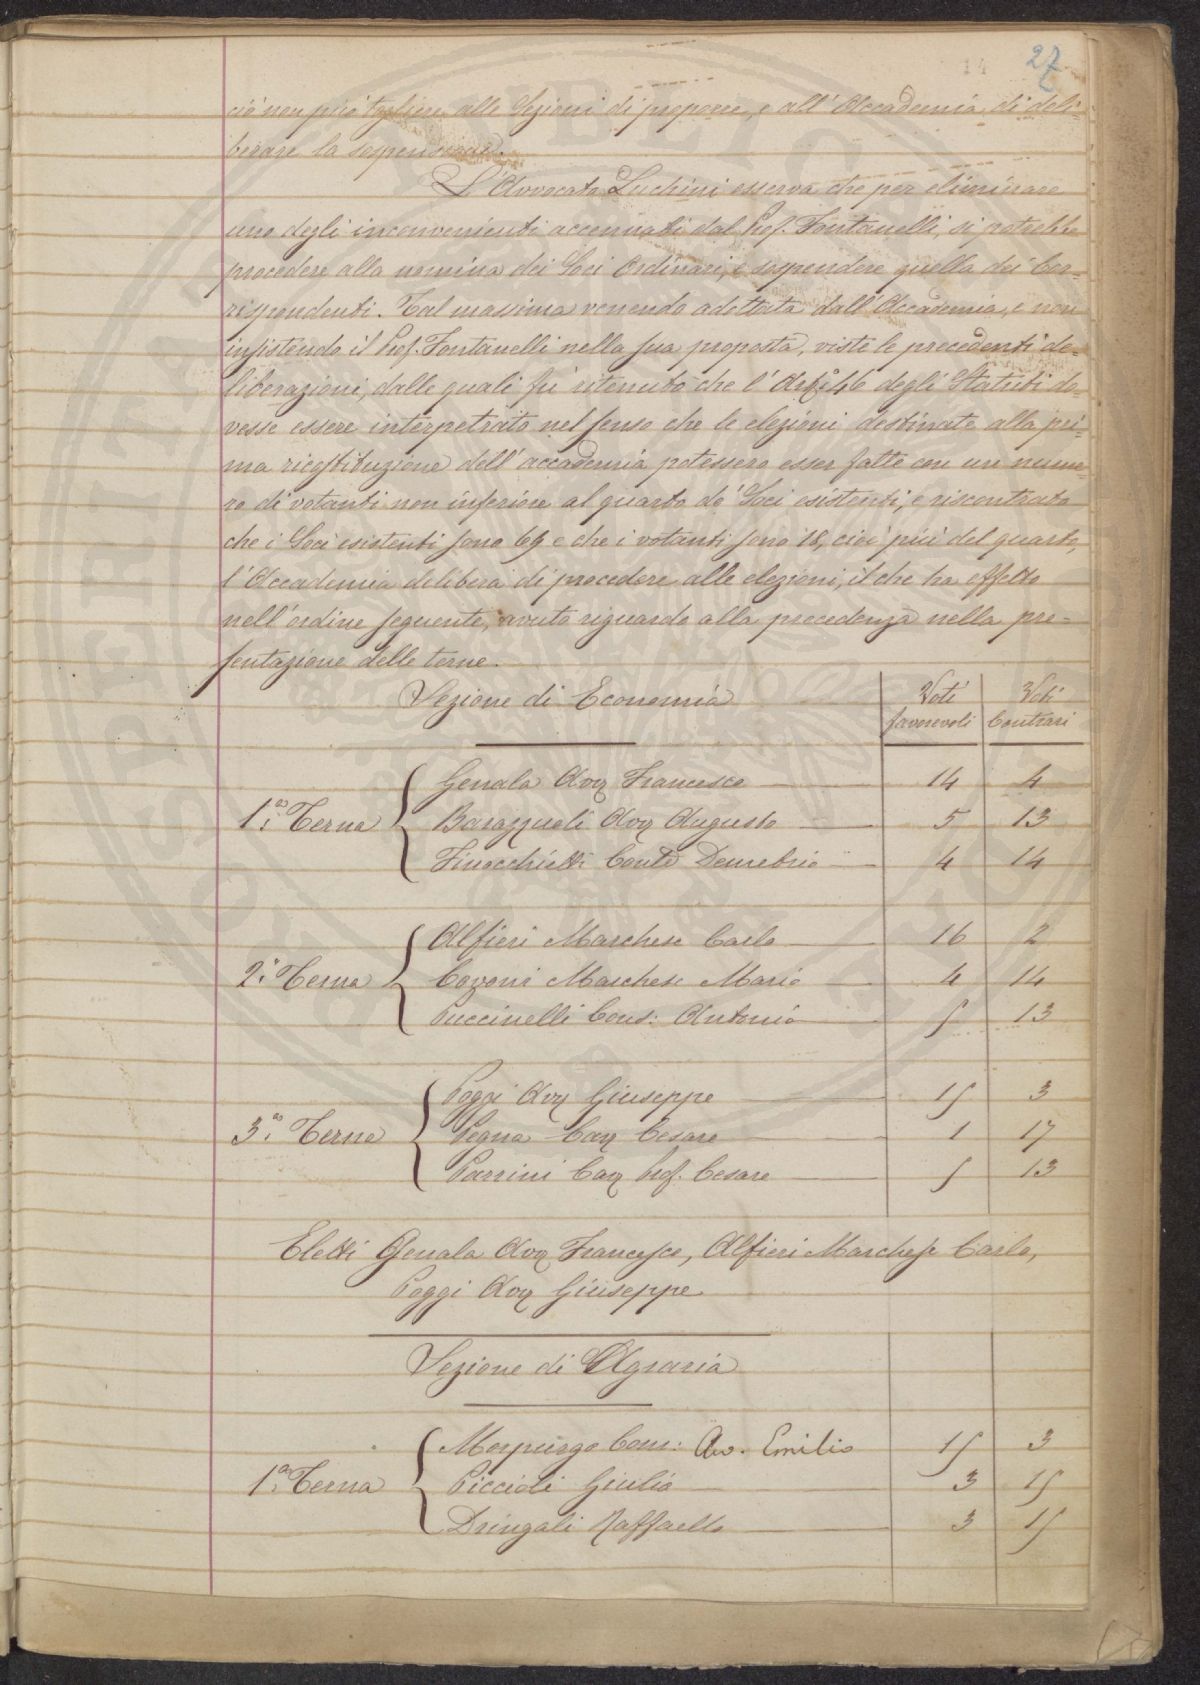 27
14
ciò non può togliere alle Sezioni di proporre, e all'Accademia di deli-
berare la sospensione.
L'Avvocato Luchini osserva che per eliminare
uno degli inconvenienti accennati dal Prof. Fontanelli, si potrebbe
procedere alla nomina dei Soci Ordinari, e sospendere quella dei Cor-
rispondenti. Tal massima venendo adottata dall'Accademia, e non
insistendo il Prof. Fontanelli nella sua proposta, viste le precedenti de-
liberazioni, dalle quali fu ritenuto che l' degli Statuti do-
vesse essere interpetrato nel senso che le elezioni destinate alla pri-
ma ricostituzione dell'accademia potessero esser fatte con un nume-
ro di votanti non inferiore al quarto de' Soci esistenti, e riscontrato
che i Soci esistenti sono 69 e che i votanti sono 18, cioè più del quarto,
l'Accademia delibera di procedere alle elezioni, il che ha effetto
nell'ordine seguente, avuto riguardo alla precedenza nella pre-
sentazione delle terne.
Sezione di Economia Voti favorevoli Voti Contrari
1.a Terna
Genala Avv Francesco 14 4
Barazzuoli Avv Augusto 5 13
Finocchietti Conte Demetrio 4 14
2.a Terna
Alfieri Marchese Carlo 16 2
Covoni Marchese Mario 4 14
Puccinelli Cons: Antonio 5 13
3.a Terna
Poggi Avv Giuseppe 15 3
Pegna Cav Cesare 1 17
Parrini Cav Prof. Cesare 5 13
Eletti Genala Avv Francesco, Alfieri Marchese Carlo,
Poggi Avv Giuseppe
Sezione di Agraria
1.a Terna
Morpurgo Com: Av. Emilio 15 3
Piccioli Giulio 3 15
Dringali Raffaello 3 15